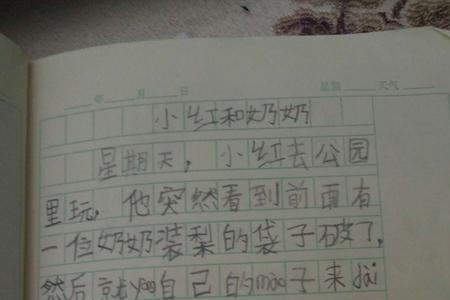 年 月 日 星期 天气
小红和奶奶
星期天，小红去公园
里玩，他突然看到前面有
一位奶奶装梨的袋子破了，
然后就yòng自己的mào子来dài